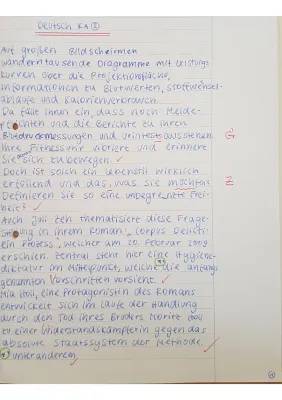 Deutsch KA ②
Auf großen Bildschirmen
wandern tausende Diagramme mit Leistungs
kurven über die Projektionsfläche,
Informationen zu Blutwerten, Stoffwechsel-
abläufe und Kalorienverbrauch.
Da fällt ihnen ein, dass noch Melde-
pflichten und die Berichte zu ihren
Blutdruckmessungen und Urintests ausstehen.
Ihre Fitnessuhr vibriert und erinnert
Sie sich zu bewegen. ✓
Doch ist solch ein Lebenstil wirklich
erfüllend und das, was sie möchten?
Definieren Sie so eine unbegrenzte Frei-
heit?
Auch Juli Zeh thematisiert diese Frage-
stellung in ihrem Roman „Corpus Delicti
ein Prozess", welcher am 20. Februar 2009
erschien. Zentral steht hier eine Hygiene-
diktatur im Mittelpunkt, welche die anfangs
genannten Vorschriften vorsieht. ✓
Mia Holl, eine Protagonistin des Romans
entwickelt sich im Laufe der Handlung
durch den Tod ihres Bruders Moritz Holl
zu einer Widerstandskämpferin gegen das
absolute Staatssystem der Methode.
unter anderem
G
Z